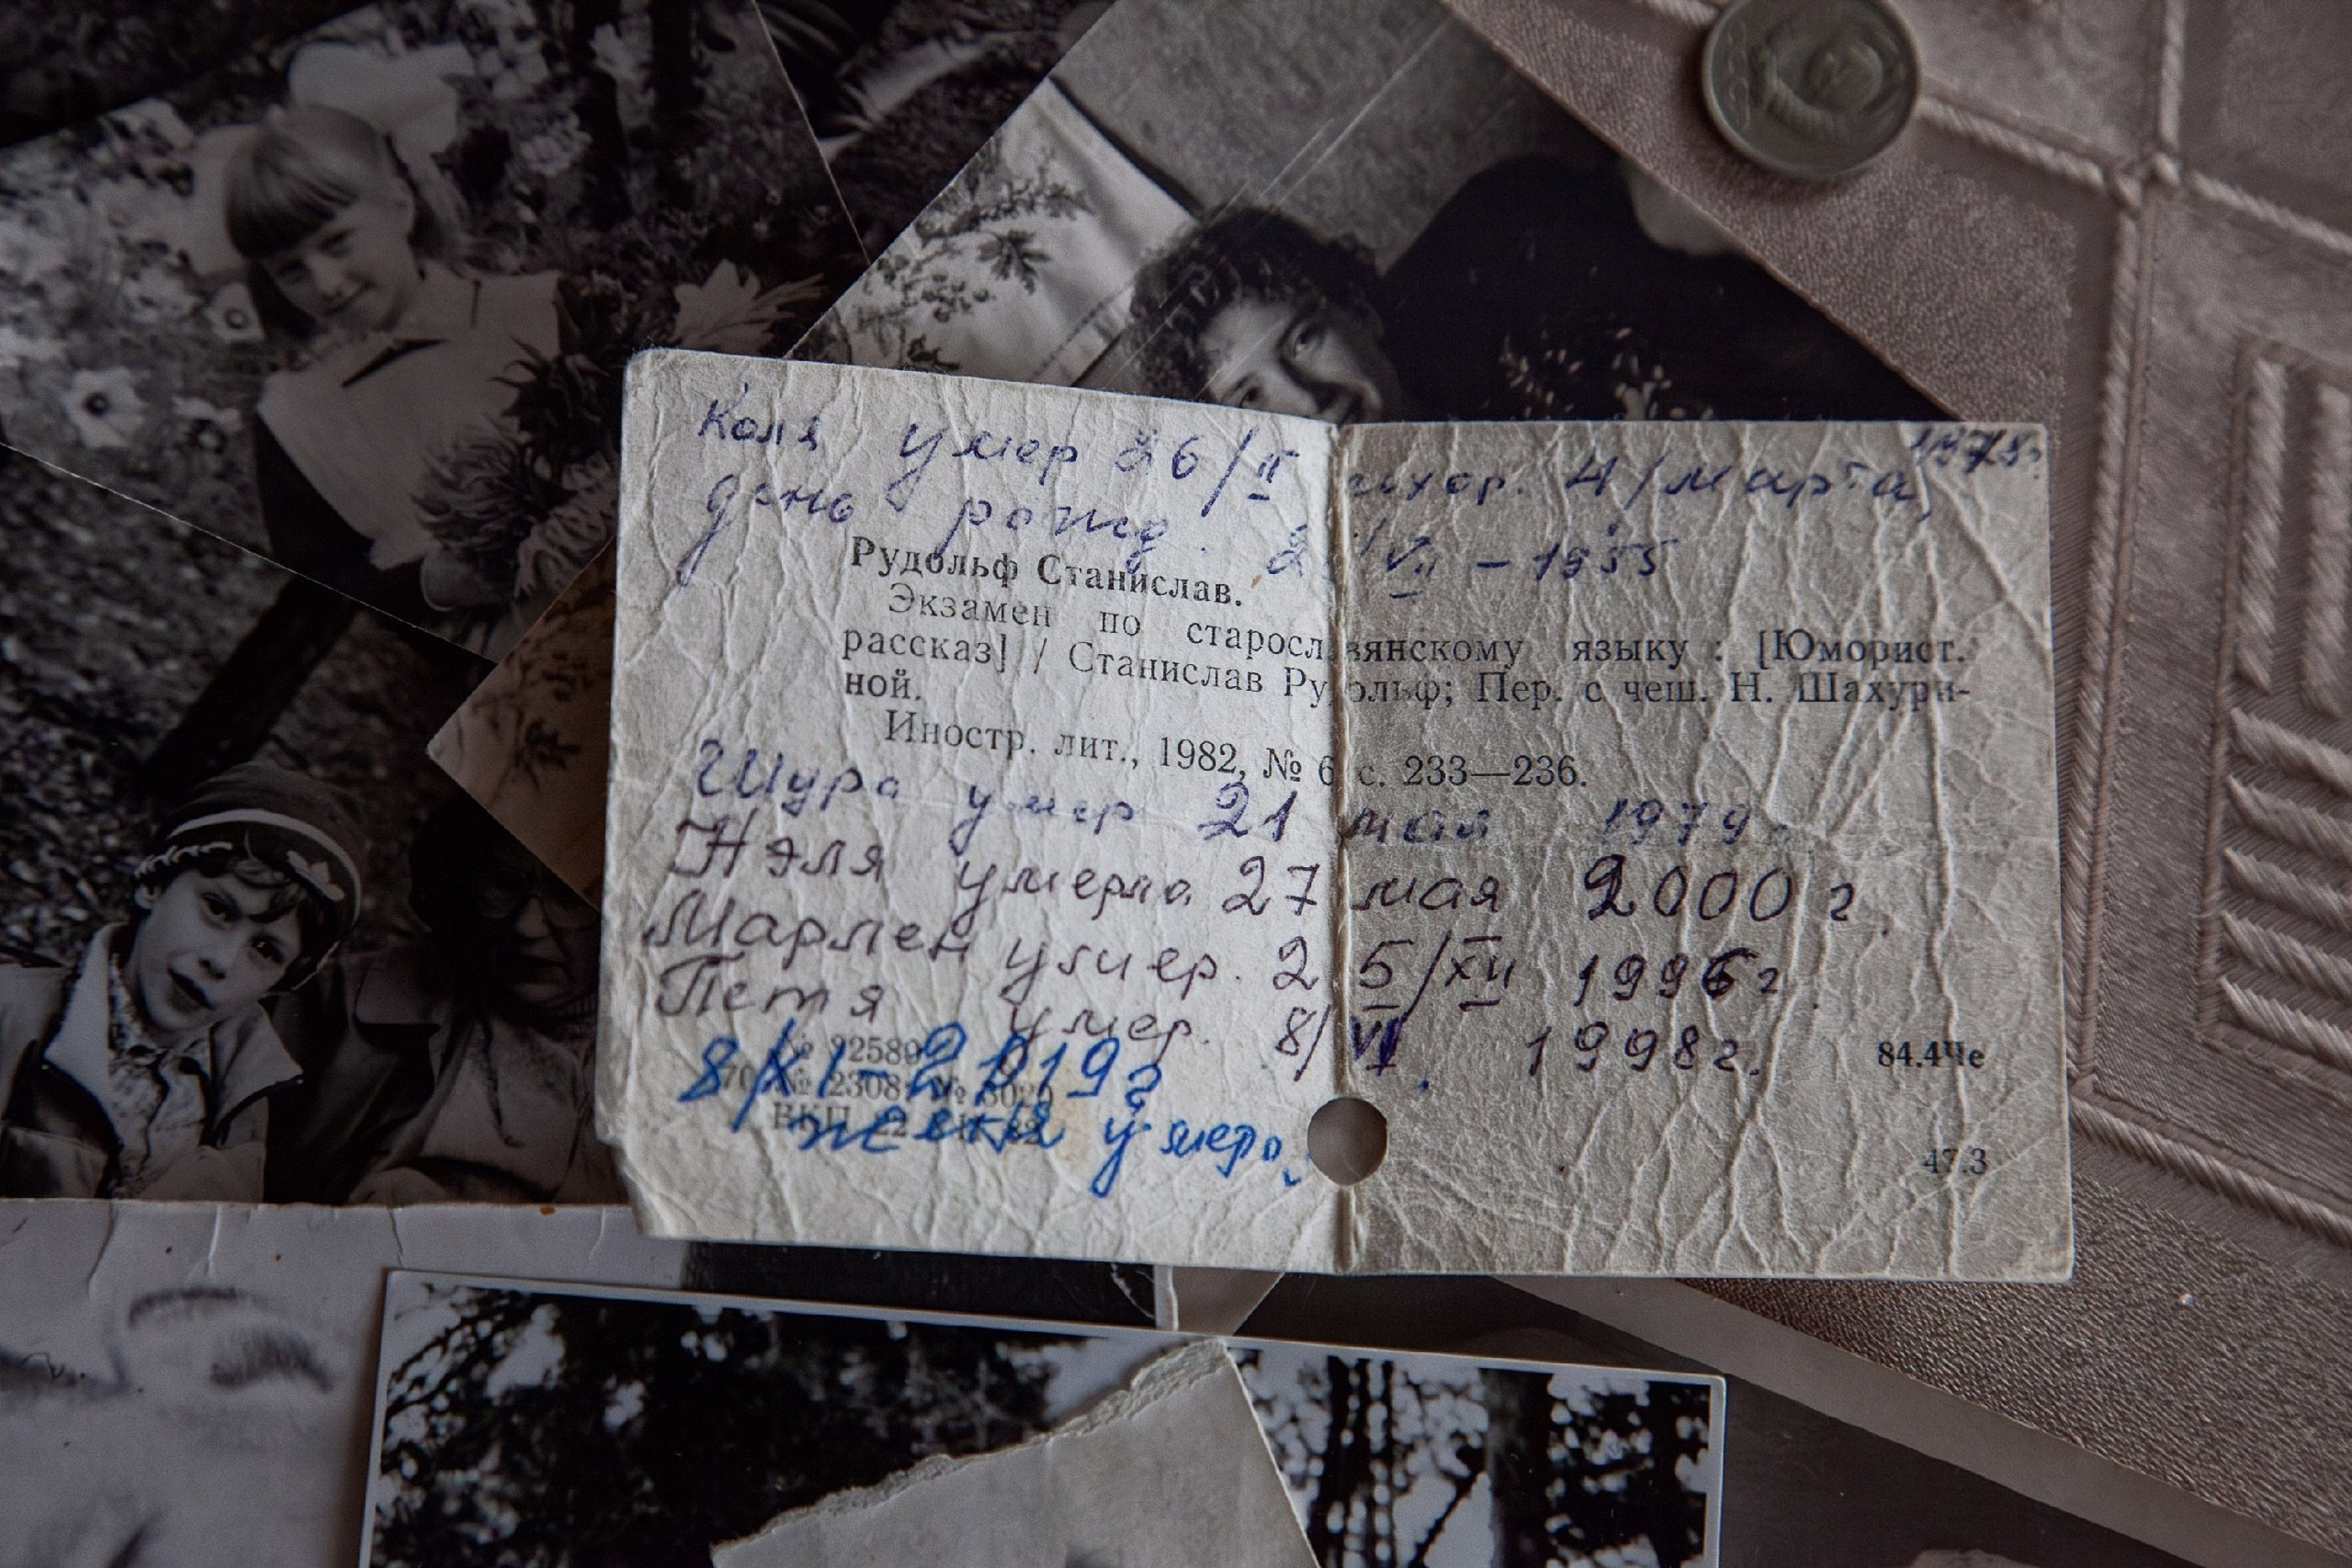 Коля умер 26/II похор. 4/марта, 1975г.
день рожд. /VII – 1955
Рудольф Станислав.
Экзамен по старославянскому языку : [Юморист.
рассказ] / Станислав Рудольф; Пер. с чеш. Н. Шахури-
ной.
Иностр. лит., 1982, № 6, с. 233—236.
Шура умер 21 мая 1979г.
Нэля умерла 27 мая 2000 г
Марлен умер. 25/XII 1996г.
Петя умер. 8/VI 1998г.
84.4Че
8/XI-2019г
Женя умерла
47.3